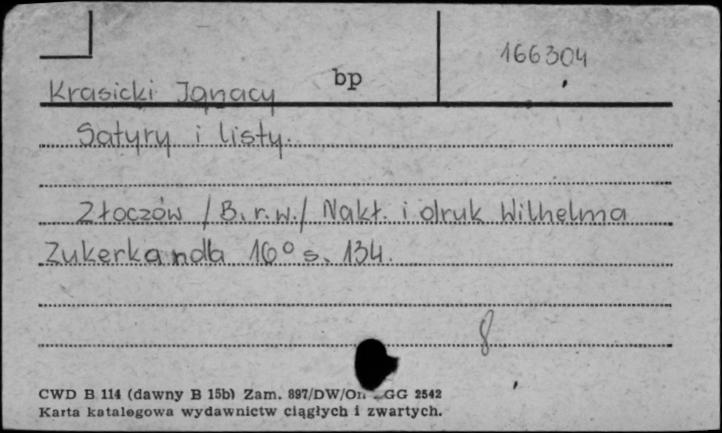 166304
Krasicki Ignacy bp
Satyry i listy.
Złoczów /B.r.w./ Nakł. i druk Wilhelma
Zukerkandla 16° s. 134.
8
CWD B 114 (dawny B 15b) Zam. 897/DW/On GG 2542
Karta katalogowa wydawnictw ciągłych i zwartych.